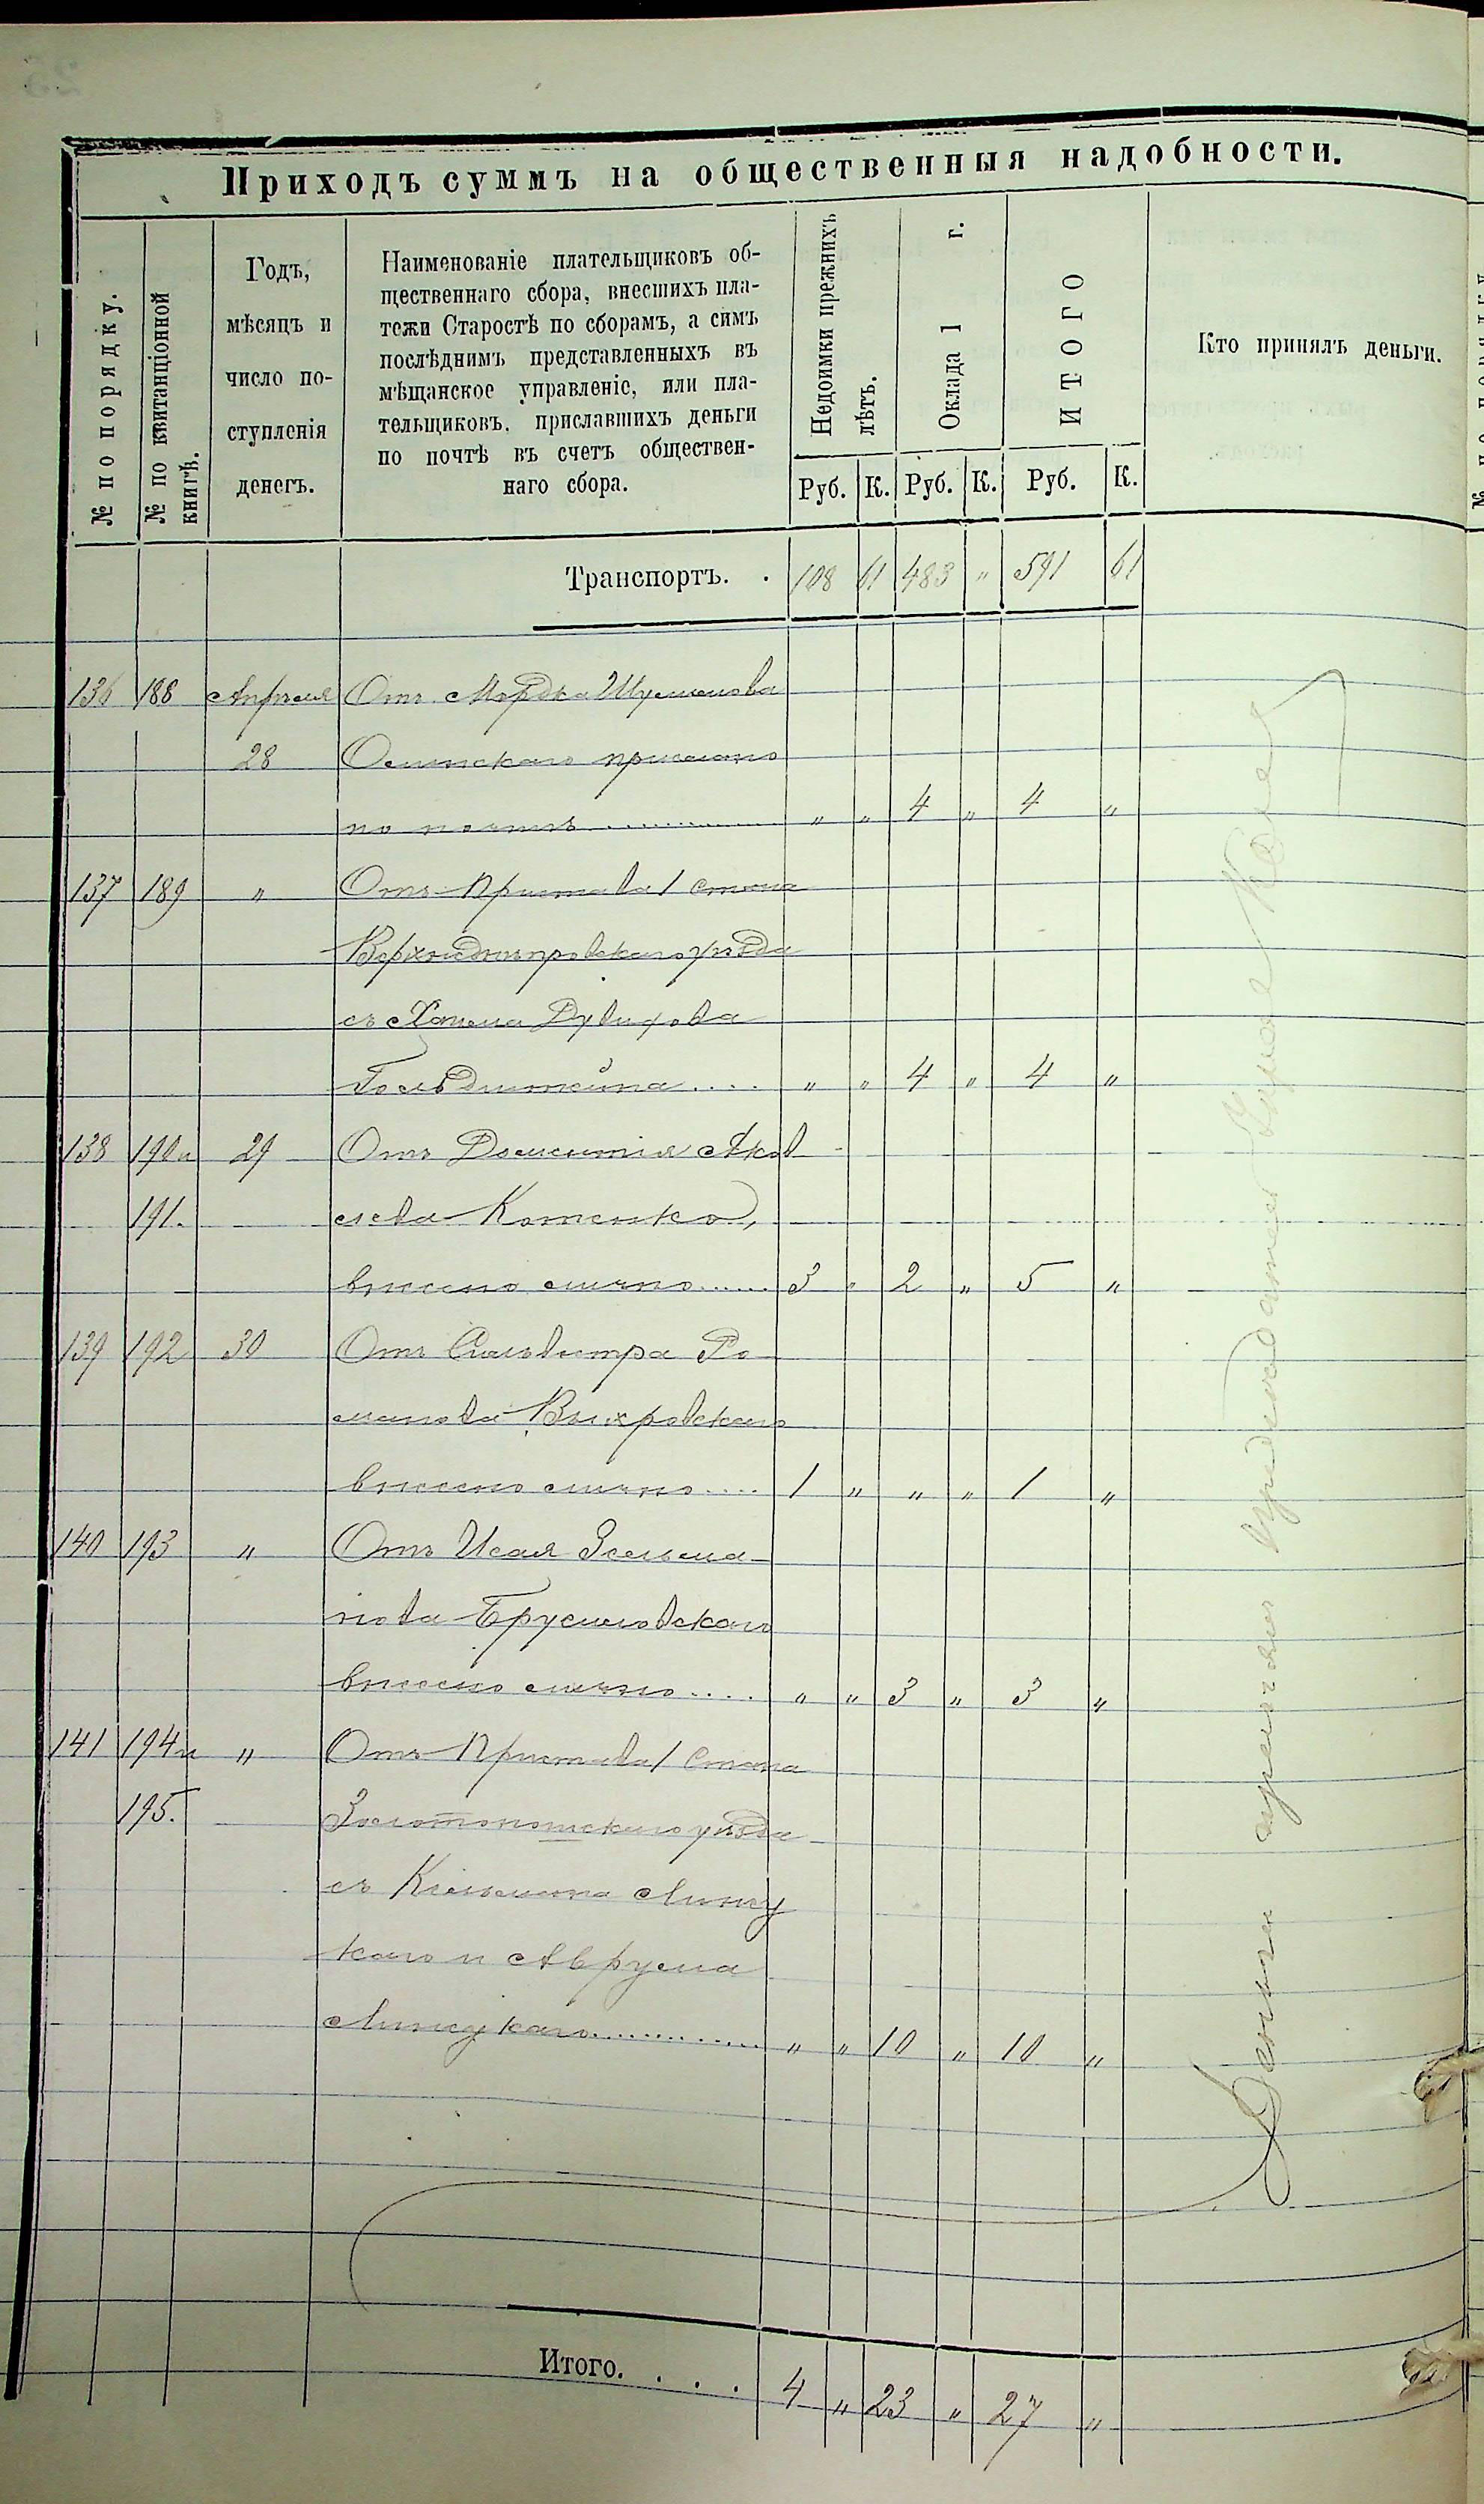 Приходъ суммъ на общественныя надобности.
№ по порядку.
№ по квитанціонной
книгѣ.
Годъ,
мѣсяцъ и
число по-
ступленія
денегъ.
Наименованіе плательщиковъ об-
щественнаго сбора, внесшихъ пла-
тежи Старостѣ по сборамъ, а симъ
послѣднимъ представленныхъ въ
мѣщанское управленіе, или пла-
тельщиковъ, приславшихъ деньги
по почтѣ въ счетъ обществен-
наго сбора.
Недоимки прежнихъ
лѣтъ.
Оклада 1 г.
ИТОГО
Кто принялъ деньги.
Руб. К. Руб. К. Руб. К.
Транспортъ. . 108 61 483 " 591 61
136 188 Апрѣля Отъ Мордка
28 прислано
по почтѣ " " 4 " 4 "
137 189 " Отъ Пристава 1 Стана
Верхнеднѣпровскаго уѣзда
съ Дувидова
Гольдштейна.... " " 4 " 4 "
138 190 и 29 Отъ Дометія Яков
191. лева Котенко,
внесено лично...... 3 " 2 " 5 "
139 192 30 Отъ Сильвестра Ро-
манова Выхровскаго
внесено лично.... 1 " " " 1 "
140 193 " Отъ Исая Зельма-
нова Брусиловскаго
внесено лично.... " " 3 " 3 "
141 194 и " Отъ Пристава 1 Стана
195. Золотоношскаго уѣзда
съ Кисельмана Липец
каго и Аврума
Липецкаго............ " " 10 " 10 "
Итого. . . . 4 " 23 " 27 "
Деньги